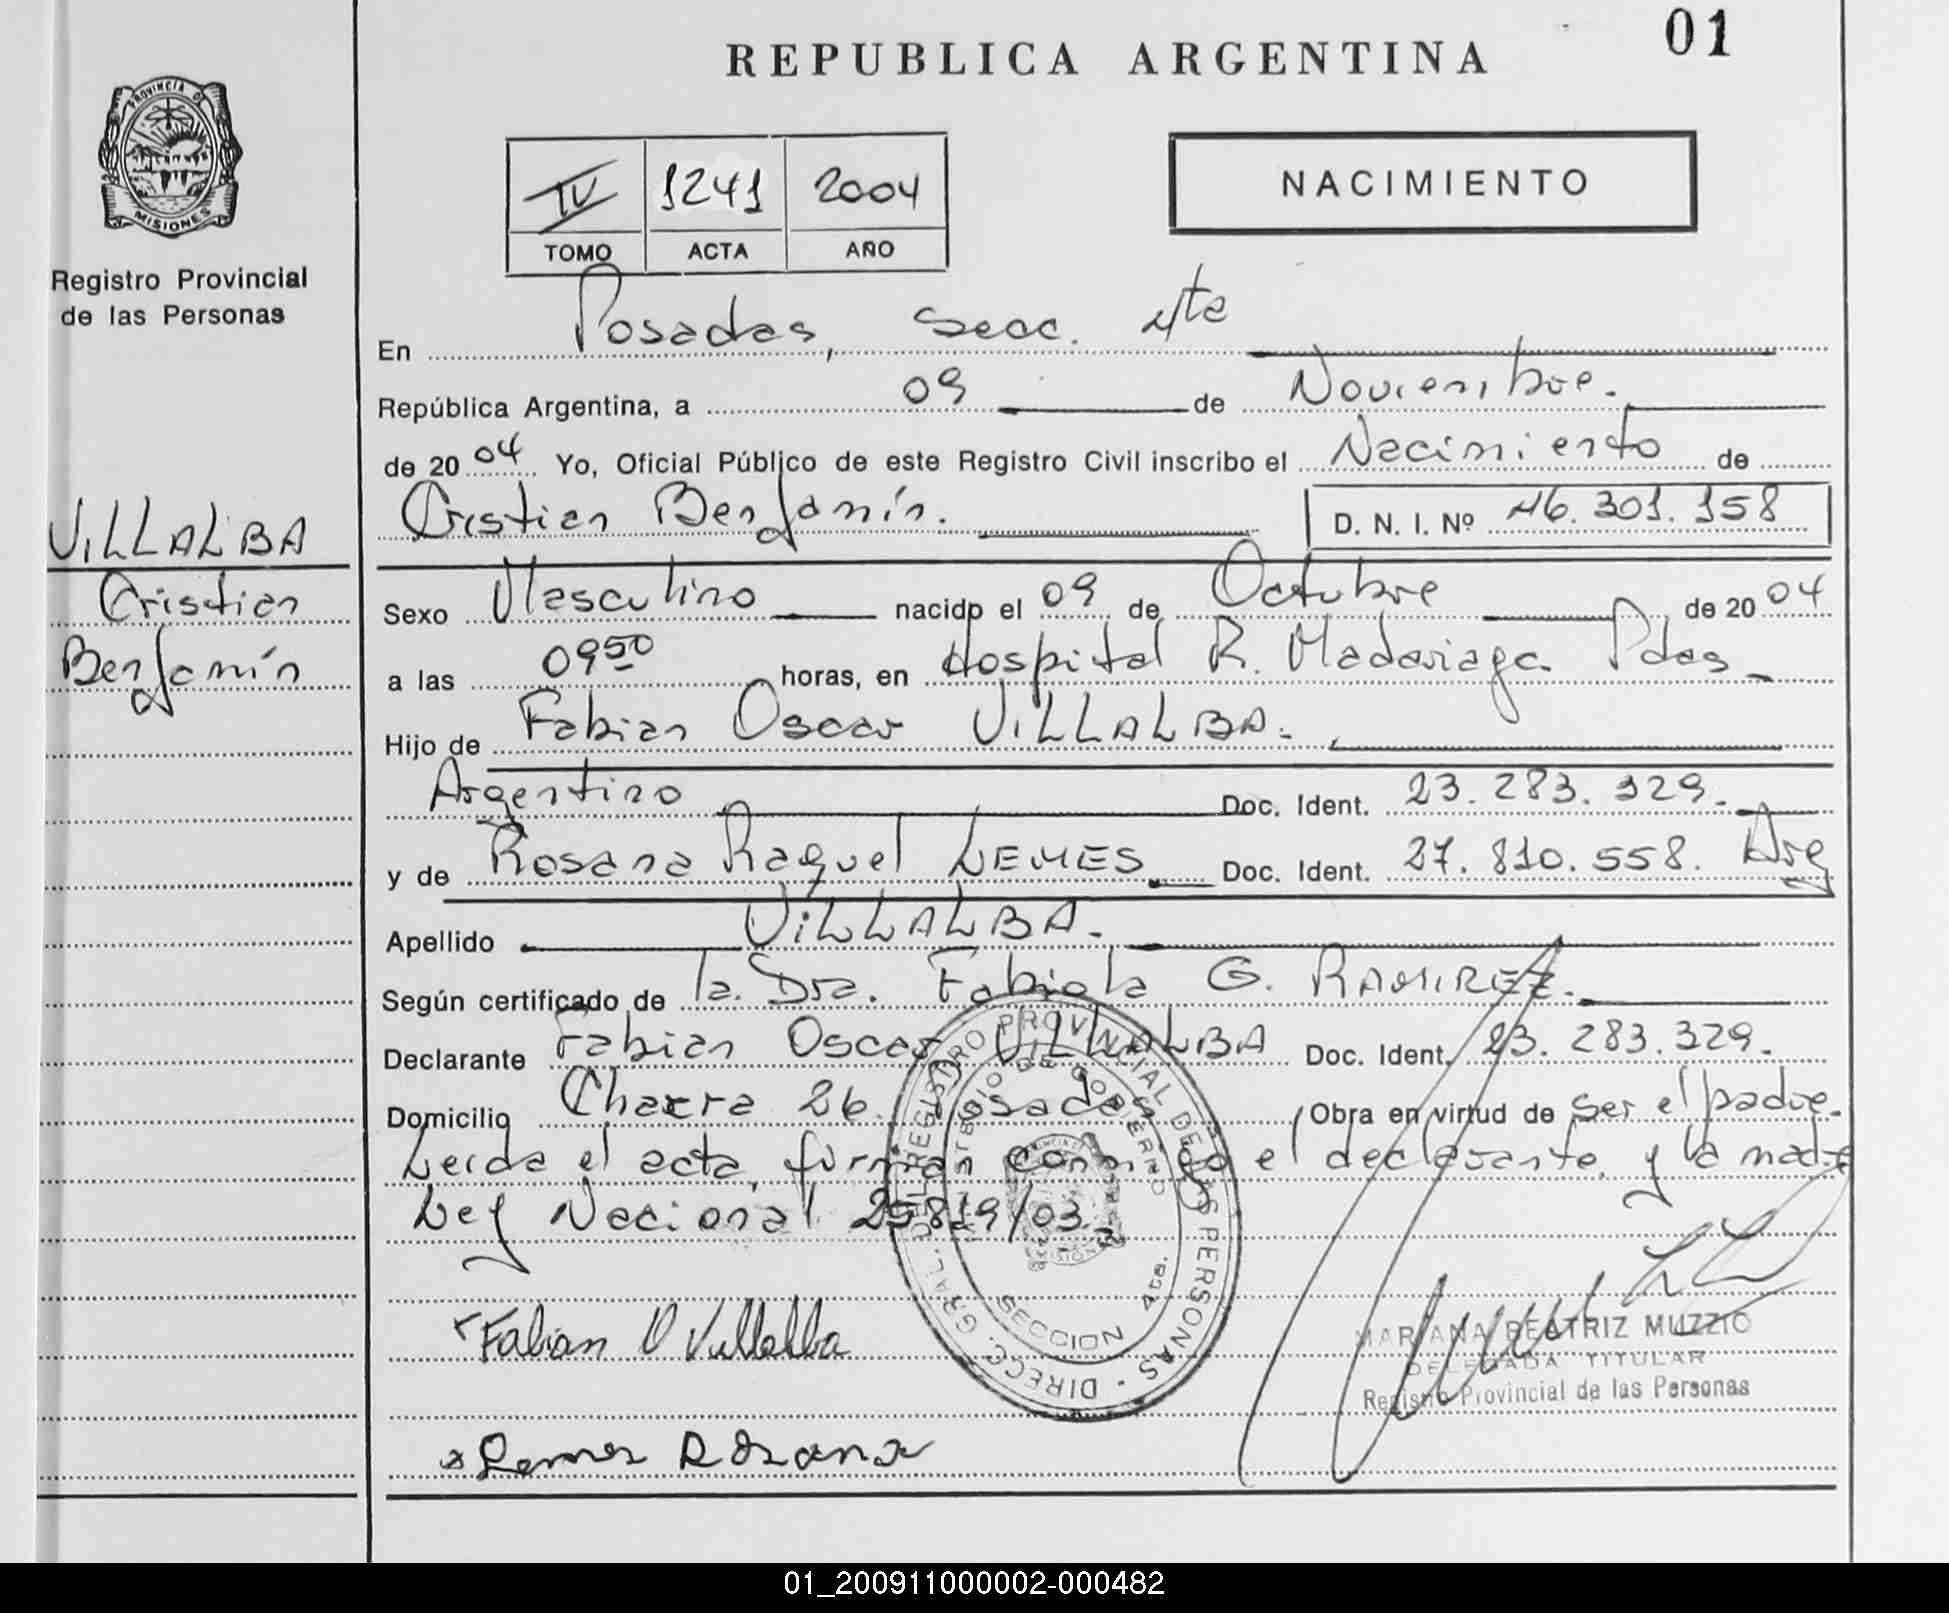 01
REPUBLICA ARGENTINA
PROVINCIA DE
MISIONES
Registro Provincial
de las Personas
IV 1241 2004
TOMO ACTA AÑO
NACIMIENTO
En Posadas, Secc. 4ta
República Argentina, a 09 de Noviembre.
de 2004 Yo, Oficial Público de este Registro Civil inscribo el Nacimiento de
Cristian Benjamín. D. N. I. Nº 46.301.158
VILLALBA
Cristian
Benjamín
Sexo Masculino nacido el 09 de Octubre de 2004
a las 09 50 horas, en Hospital R. Madariaga Pdas
Hijo de Fabian Oscar VILLALBA.
Argentino Doc. Ident. 23.283.329.
y de Rosana Raquel LEMES. Doc. Ident. 27.810.558. Arg
Apellido VILLALBA.
Según certificado de la. Dra. Fabiola G. RAMIREZ.
Declarante Fabian Oscar VILLALBA Doc. Ident. 23.283.329.
Domicilio Chacra 26. Posadas Obra en virtud de ser el padre.
Leida el acta, firman conmigo el declarante, y la madre
Ley Nacional 25819/03.
DIRECC. GRAL. DEL REGISTRO PROVINCIAL DE LAS PERSONAS
MINISTERIO DE GOBIERNO
SECCION 4ta.
Fabian O Villalba
MARIANA BEATRIZ MUZZIO
DELEGADA TITULAR
Registro Provincial de las Personas
Lemes Rosana
01_200911000002-000482